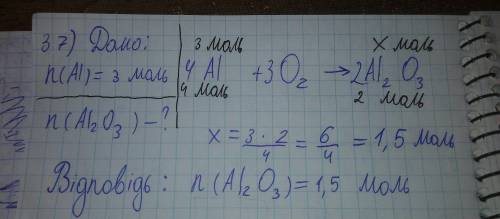 37) Дано:
n(Al) = 3 моль
n(Al₂O₃) – ?
3 моль x моль
4Al + 3O₂ → 2Al₂O₃
4 моль 2 моль
x = 3·2/4 = 6/4 = 1,5 моль
Відповідь: n(Al₂O₃) = 1,5 моль